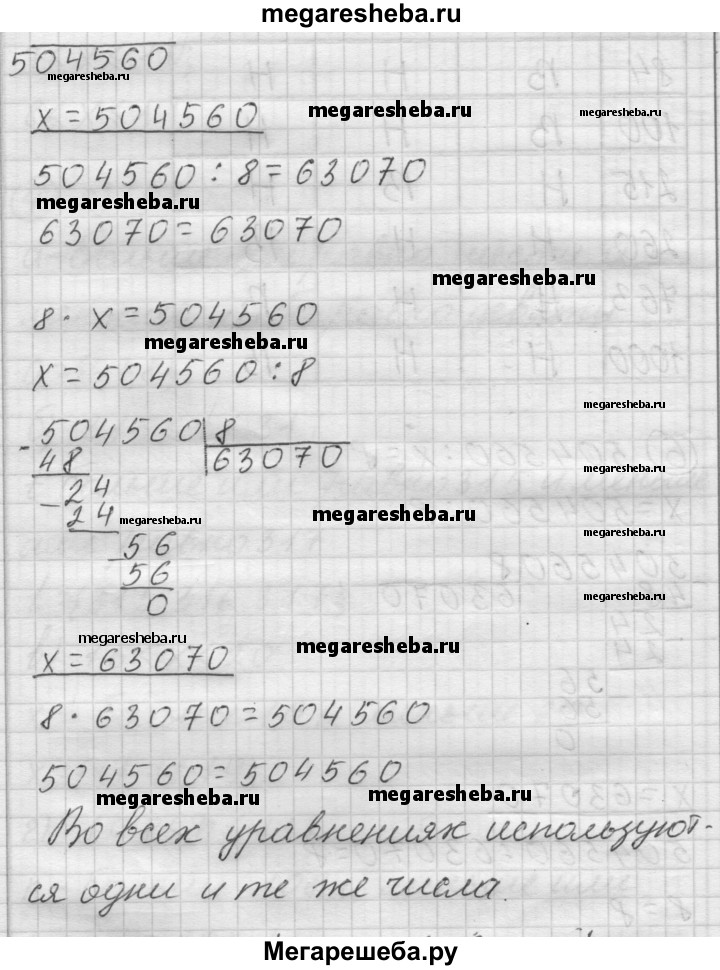 megaresheba.ru
504560
megaresheba.ru
x = 504560
megaresheba.ru
megaresheba.ru
504560 : 8 = 63070
megaresheba.ru
63070 = 63070
megaresheba.ru
8 · x = 504560
megaresheba.ru
x = 504560 : 8
megaresheba.ru
- 504560 | 8
48 63070
megaresheba.ru
- 24
24
megaresheba.ru
megaresheba.ru
megaresheba.ru
- 56
56
0
megaresheba.ru
megaresheba.ru
megaresheba.ru
x = 63070
8 · 63070 = 504560
504560 = 504560
megaresheba.ru
megaresheba.ru
Во всех уравнениях используют-
ся одни и те же числа.
Мегарешеба.ру